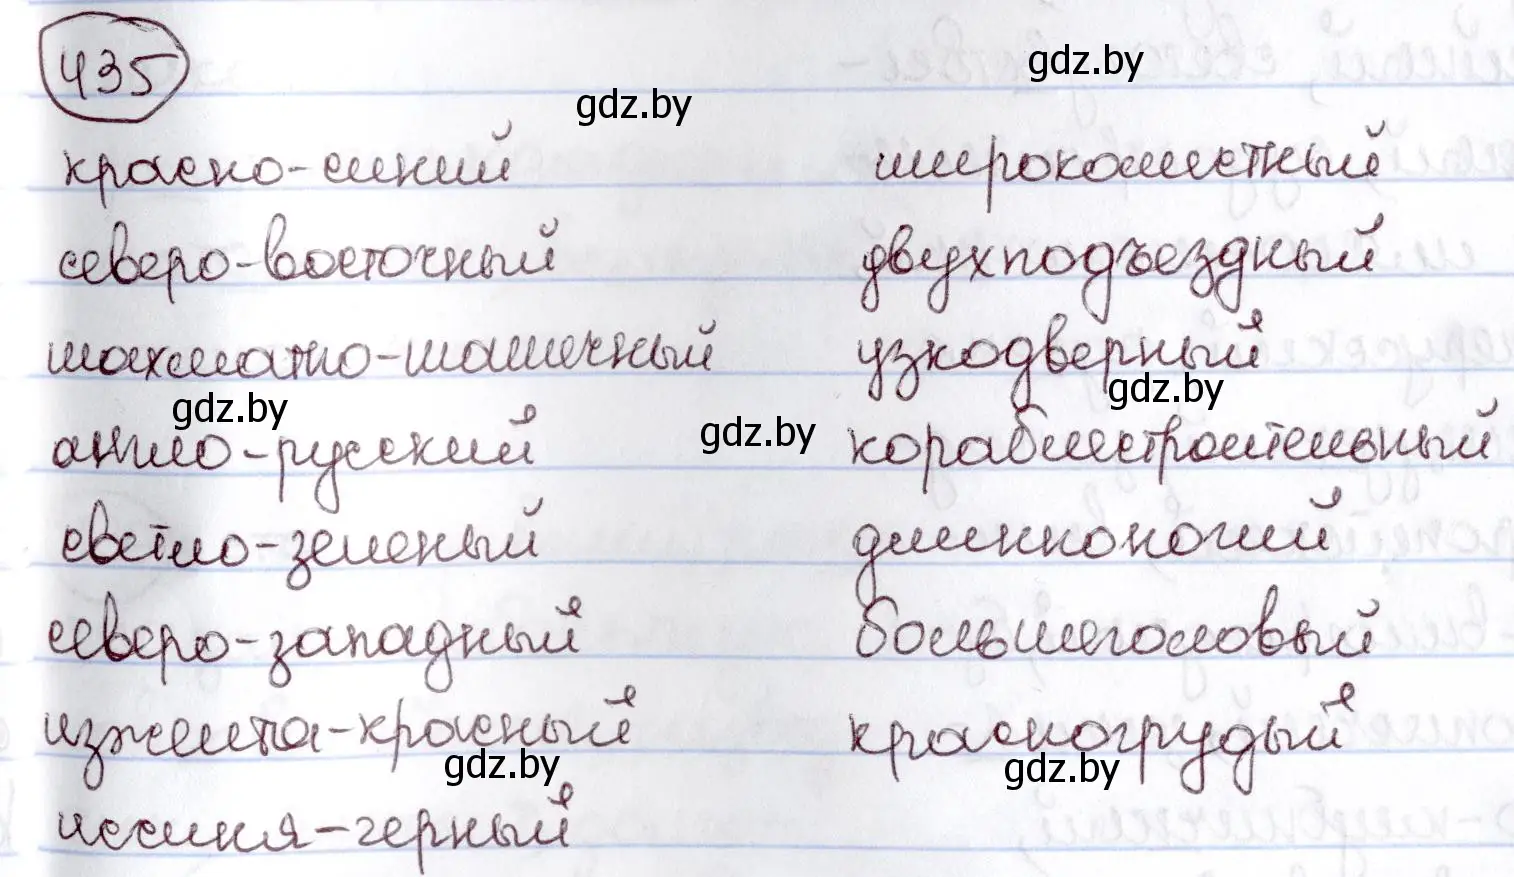 435
gdz.by
gdz.by
красно-синий
северо-восточный
шахматно-шашечный
gdz.by
англо-русский
светло-зеленый
северо-западный
изжелта-красный
gdz.by
иссиня-черный
широколистный
двухподъездный
узкодверный
gdz.by
gdz.by
кораблестроительный
длинноногий
большеголовый
красногрудый
gdz.by